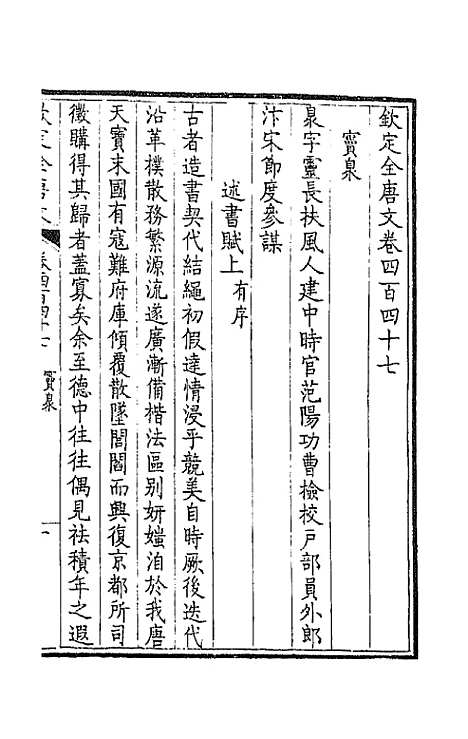 欽定全唐文卷四百四十七
竇臮
臮字靈長扶風人建中時官范陽功曹檢校戶部員外郎
汴宋節度參謀
述書賦上有序
古者造書契代結繩初假達情浸乎競美自時厥後迭代
沿革樸散務繁源流遂廣漸備楷法區別妍媸洎於我唐
天寶末國有寇難府庫傾覆散墜閭閻而興復京都所司
徵購得其歸者蓋寡矣余至德中往往偶見祛積年之遐
欽定全唐文
卷四百四十七
竇臮
一